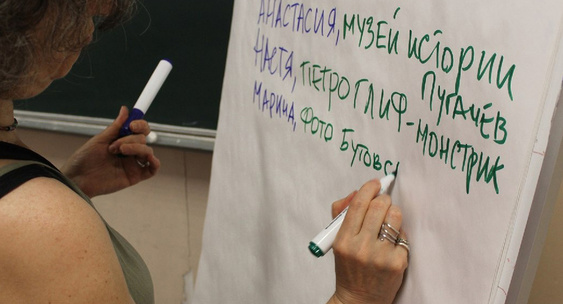 АНАСТАСИЯ, МУЗЕЙ ИСТОРИИ
ПУГАЧЁВ
НАСТЯ, ПЕТРОГЛИФ-МОНСТРИК
МАРИНА, ФОТО БУТОВС